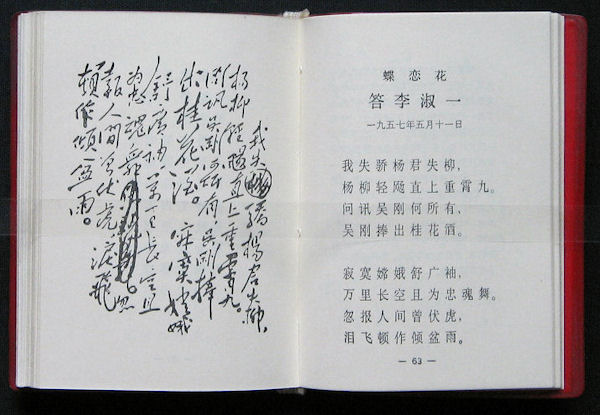 我失驕楊君失柳,
楊柳輕颺直上重霄九。
問訊吳剛何所有 吳剛捧
出桂花酒。 寂寞嫦娥
舒廣袖 万里長空且
為忠魂舞。忽
報人間曾伏虎,淚飛
頓作傾盆雨。
蝶恋花
答李淑一
一九五七年五月十一日
我失骄杨君失柳,
杨柳轻飏直上重霄九。
问讯吴刚何所有、
吴刚捧出桂花酒。
寂寞嫦娥舒广袖,
万里长空且为忠魂舞。
忽报人间曾伏虎,
泪飞顿作倾盆雨。
— 63 —